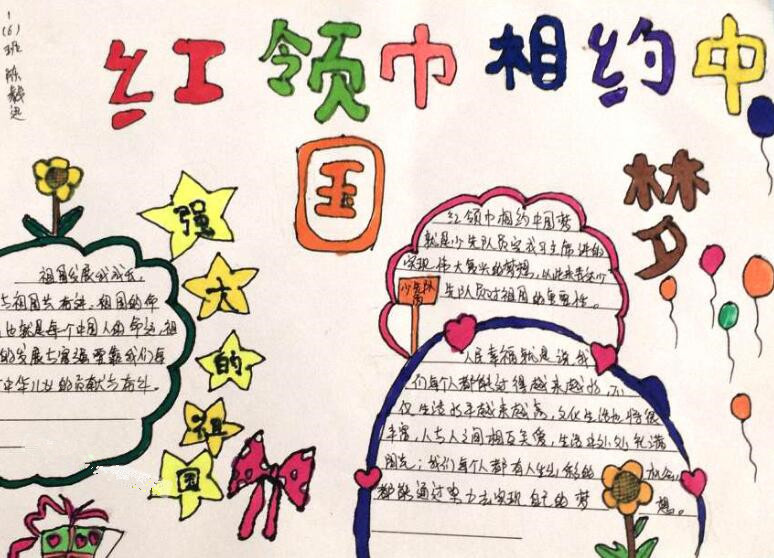 1(6)班 陈毅迅
红领巾相约中
国
梦
强大的祖国
祖国发展我成长
与祖国共奋进，祖国的命
也就是每个中国人的命运，祖
的发展与富强要靠我们每
中华儿女的贡献与奋斗。
红领巾相约中国梦
就是少先队员完成习主席讲的
实现伟大复兴的梦想，以此来表达少
先队员对祖国的重要性。
少先队
人民幸福就是说，我
们每个人都能过得越来越好，不
仅生活水平越来越高，文化生活也将很
丰富，人与人之间相互关爱，生活处处充满
阳光；我们每个人都有人生出彩的机会，
都能通过努力去实现自己的梦想。